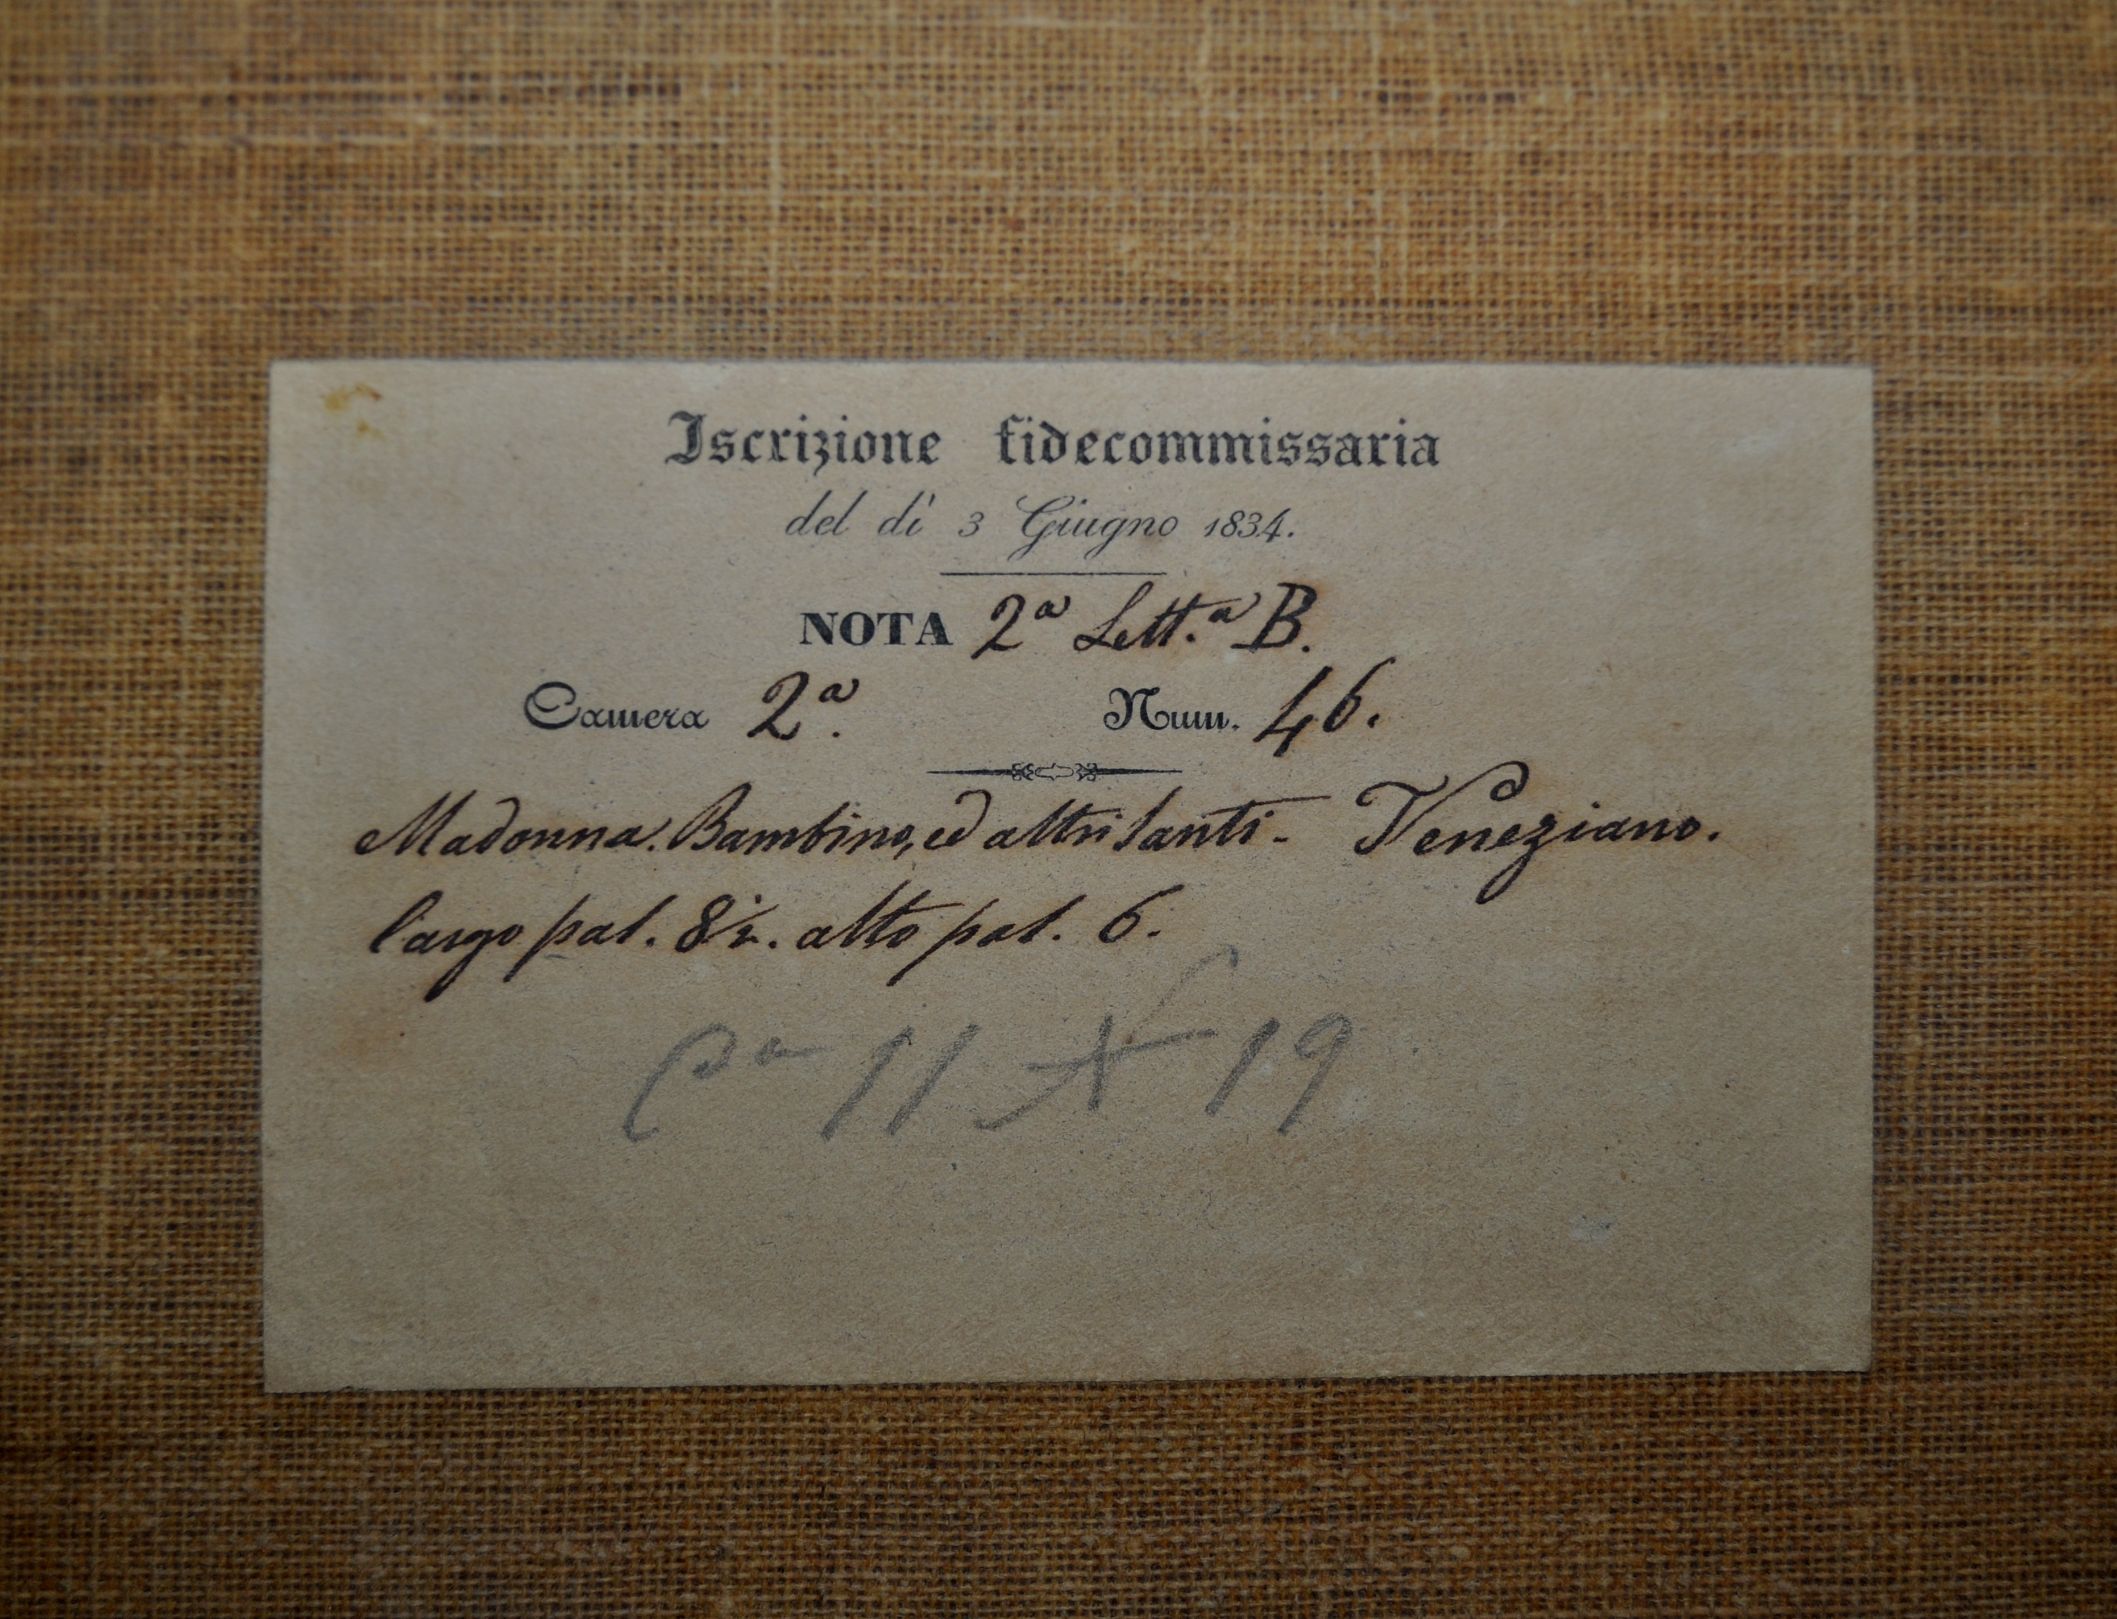 Iscrizione fidecommissaria
del dì 3 Giugno 1834.
NOTA 2ª Lett.ª B.
Camera 2ª. Num. 46.
Madonna. Bambino, ed altri Santi - Veneziano.
largo pal. 8½. alto pal. 6.
11 19